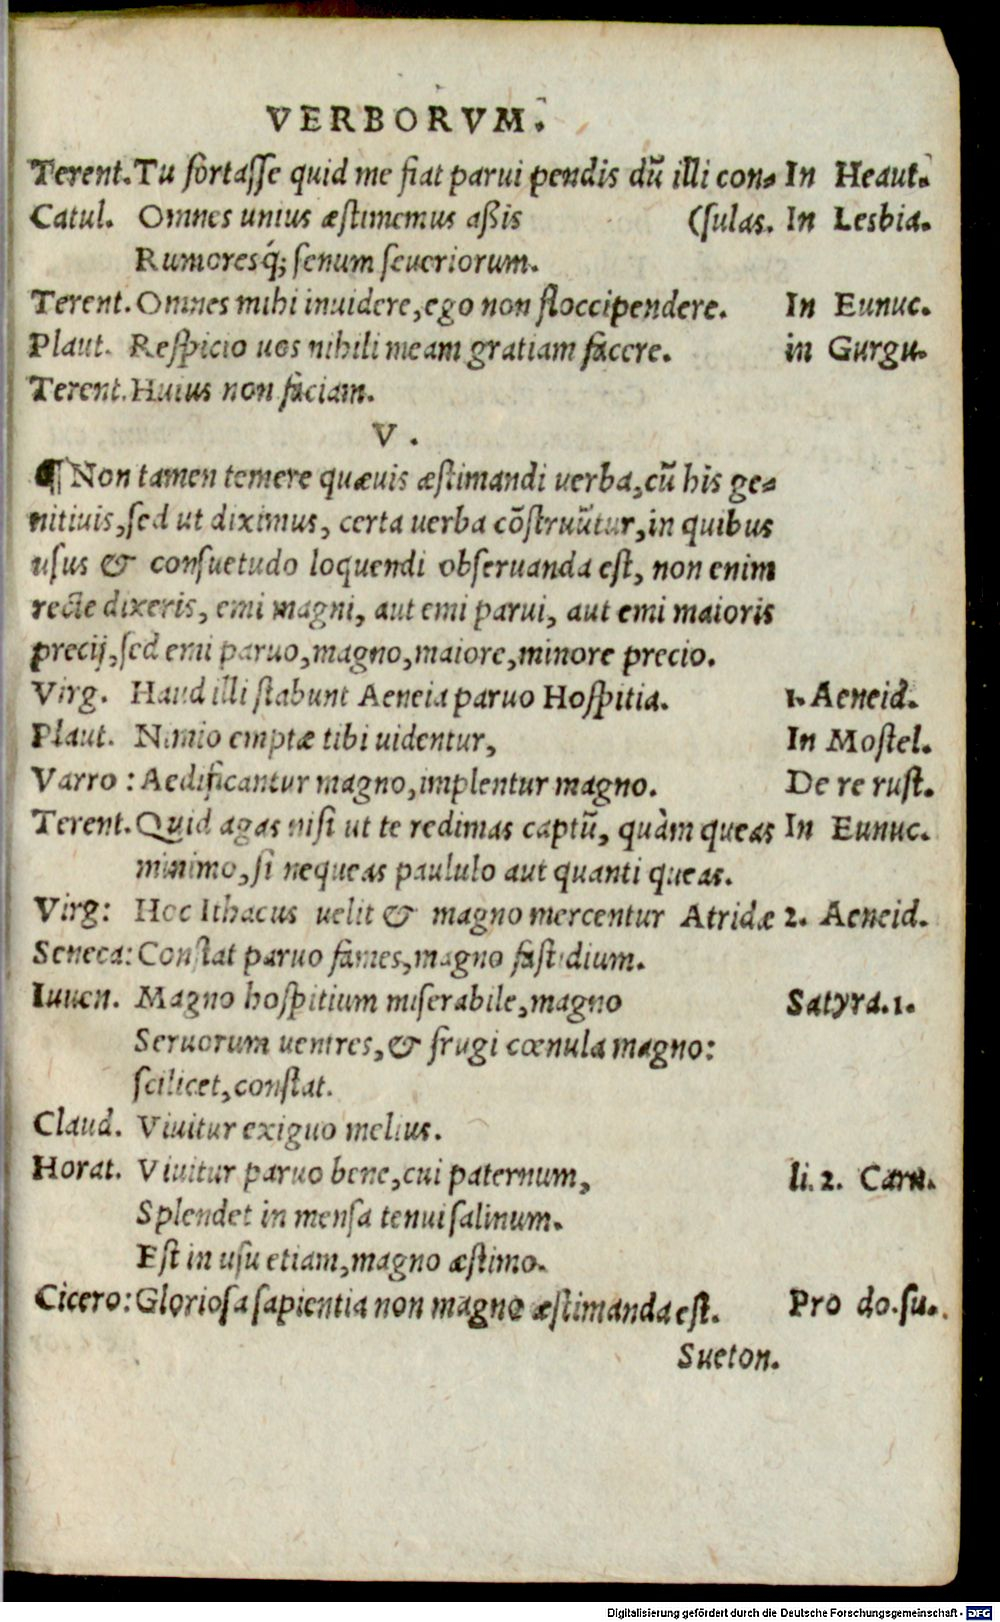 VERBORVM.
Terent. Tu fortasse quid me fiat parui pendis dũ illi con- In Heaut.
Catul. Omnes unius æstimemus aßis (sulas. In Lesbia.
Rumoresq́; senum seueriorum.
Terent. Omnes mihi inuidere, ego non floccipendere. In Eunuc.
Plaut. Respicio uos nihili meam gratiam facere. in Gurgu.
Terent. Huius non faciam.
V.
¶ Non tamen temere quæuis æstimandi uerba, cũ his ge-
nitiuis, sed ut diximus, certa uerba cõstruũtur, in quibus
usus & consuetudo loquendi obseruanda est, non enim
recte dixeris, emi magni, aut emi parui, aut emi maioris
precij, sed emi paruo, magno, maiore, minore precio.
Virg. Haud illi stabunt Aeneia paruo Hospitia. 1. Aeneid.
Plaut. Nimio emptæ tibi uidentur, In Mostel.
Varro: Aedificantur magno, implentur magno. De re rust.
Terent. Quid agas nisi ut te redimas captũ, quàm queas In Eunuc.
minimo, si nequeas paululo aut quanti queas.
Virg: Hoc Ithacus uelit & magno mercentur Atridæ 2. Aeneid.
Seneca: Constat paruo fames, magno fastidium.
Iuuen. Magno hospitium miserabile, magno Satyra. 1.
Seruorum uentres, & frugi cœnula magno:
scilicet, constat.
Claud. Viuitur exiguo melius.
Horat. Viuitur paruo bene, cui paternum, li. 2. Carn.
Splendet in mensa tenui salinum.
Est in usu etiam, magno æstimo.
Cicero: Gloriosa sapientia non magno æstimanda est. Pro do. su.
Sueton.
Digitalisierung gefördert durch die Deutsche Forschungsgemeinschaft - DFG